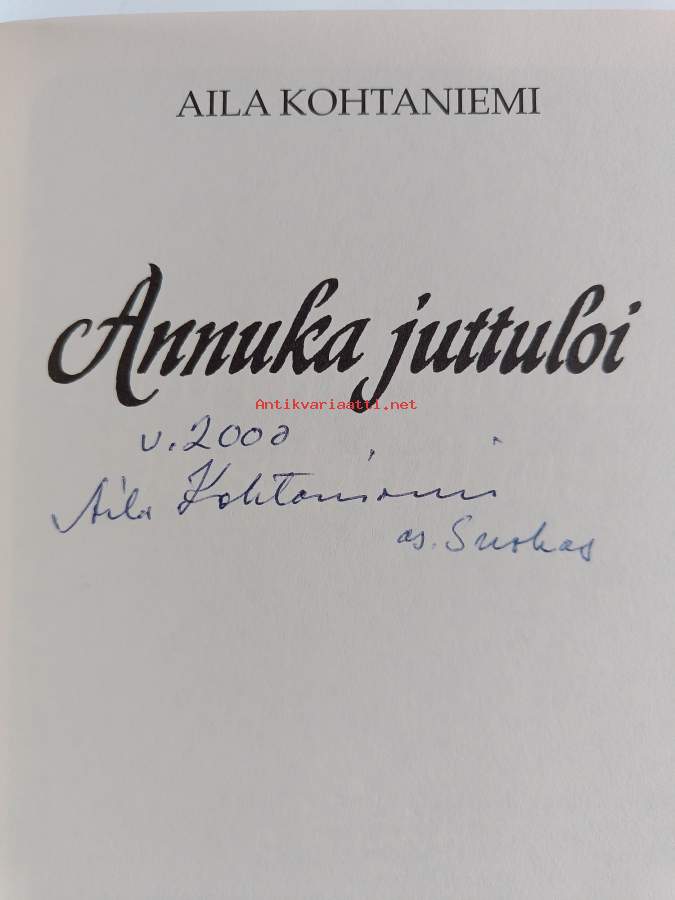 AILA KOHTANIEMI
Annuka juttuloi
Antikvariaatti.net
v. 2000
Aila Kohtaniemi
os. Suokas